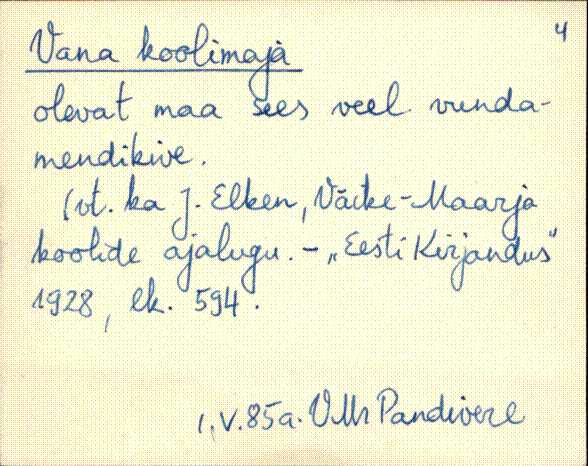 4
Vana koolimaja
olevat maa sees veel vunda-
mendikive.
(vt. ka J. Elken, Väike-Maarja
koolide ajalugu. – „Eesti Kirjandus"
1928, lk. 594.
1.V.85a. V.Mr Pandivere